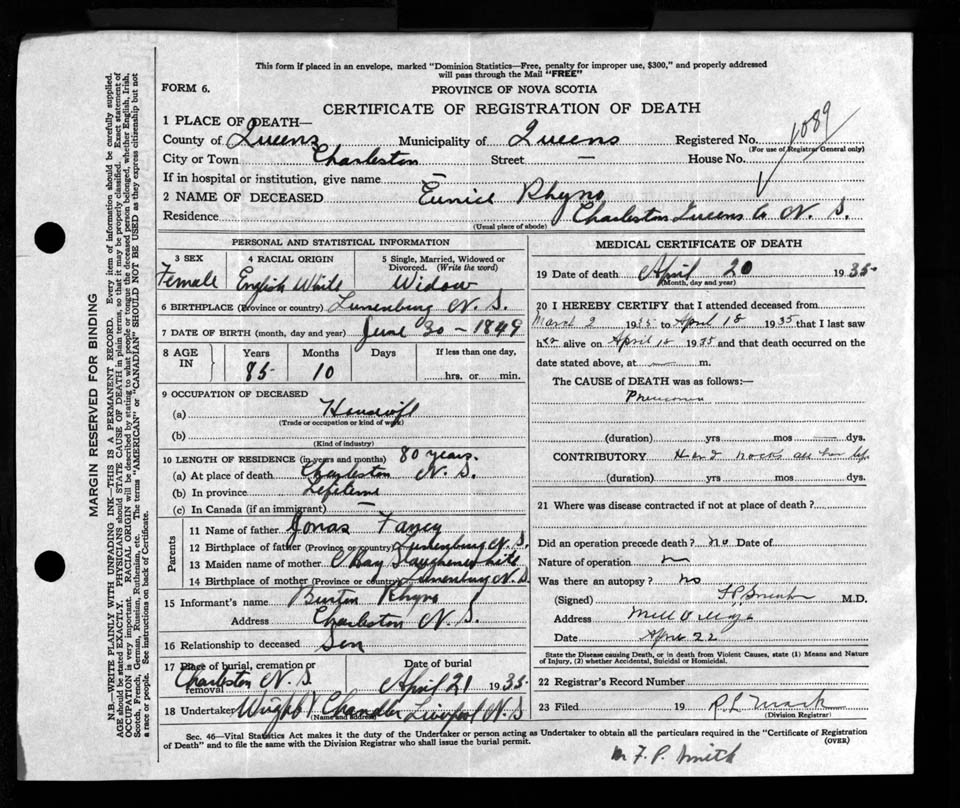 This form if placed in an envelope, marked "Dominion Statistics—Free, penalty for improper use, $300," and properly addressed
will pass through the Mail "FREE"
FORM 6.
PROVINCE OF NOVA SCOTIA
CERTIFICATE OF REGISTRATION OF DEATH
1 PLACE OF DEATH—
County of Queens Municipality of Queens Registered No. 1089
(For use of Registry General only)
City or Town Charleston Street — House No.
If in hospital or institution, give name —
2 NAME OF DECEASED Eunice Rhyno
Residence Charleston Queens Co N. S.
(Usual place of abode)
PERSONAL AND STATISTICAL INFORMATION
3 SEX 4 RACIAL ORIGIN 5 Single, Married, Widowed or
Divorced. (Write the word)
Female English White Widow
6 BIRTHPLACE (Province or country) Lunenburg N. S.
7 DATE OF BIRTH (month, day and year) June 30 - 1849
8 AGE IN Years Months Days If less than one day,
85 10 hrs. or min.
9 OCCUPATION OF DECEASED
(a) Housewife
(Trade or occupation or kind of work)
(b)
(Kind of industry)
10 LENGTH OF RESIDENCE (in years and months) 80 years.
(a) At place of death Charleston N. S.
(b) In province Lifetime
(c) In Canada (if an immigrant) —
Parents
11 Name of father Jonas Fancy
12 Birthplace of father (Province or country) Lunenburg N. S.
13 Maiden name of mother
14 Birthplace of mother (Province or country) Lunenburg N. S.
15 Informant's name Burton Rhyno
Address Charleston N. S.
16 Relationship to deceased Son
17 Place of burial, cremation or removal Date of burial
Charleston N. S. April 21 1935
18 Undertaker Wright Chandler Liverpool N. S
(Name and address)
MEDICAL CERTIFICATE OF DEATH
19 Date of death April 20 1935
(Month, day and year)
20 I HEREBY CERTIFY that I attended deceased from
March 2 1935 to April 18 1935 that I last saw
her alive on April 18 1935 and that death occurred on the
date stated above, at — m.
The CAUSE OF DEATH was as follows:—
Pneumonia
(duration) yrs mos — dys.
CONTRIBUTORY Hard work all her life
(duration) yrs. mos. dys.
21 Where was disease contracted if not at place of death?
Did an operation precede death? no Date of
Nature of operation
Was there an autopsy? no
(Signed) F P Smith M.D.
Address Mill Village
Date April 22
State the Disease causing Death, or in death from Violent Causes, state (1) Means and Nature
of Injury, (2) whether Accidental, Suicidal or Homicidal.
22 Registrar's Record Number
23 Filed 19 R L Mack
(Division Registrar)
Sec. 46—Vital Statistics Act makes it the duty of the Undertaker or person acting as Undertaker to obtain all the particulars required in the "Certificate of Registration
of Death" and to file the same with the Division Registrar who shall issue the burial permit.
(OVER)
F. P. Smith
MARGIN RESERVED FOR BINDING
N.B.—WRITE PLAINLY WITH UNFADING INK—THIS IS A PERMANENT RECORD. Every item of information should be carefully supplied.
AGE should be stated EXACTLY. PHYSICIANS should STATE CAUSE OF DEATH in plain terms, so that it may be properly classified. Exact statement of
OCCUPATION is very important. RACIAL ORIGIN will be described by stating to what people or tongue the deceased person belonged, whether English, Irish,
Scotch, French, German, Russian, Ruthenian, etc. The terms "AMERICAN" or "CANADIAN" SHOULD NOT BE USED as they express citizenship but not
a race or people. See instructions on back of Certificate.